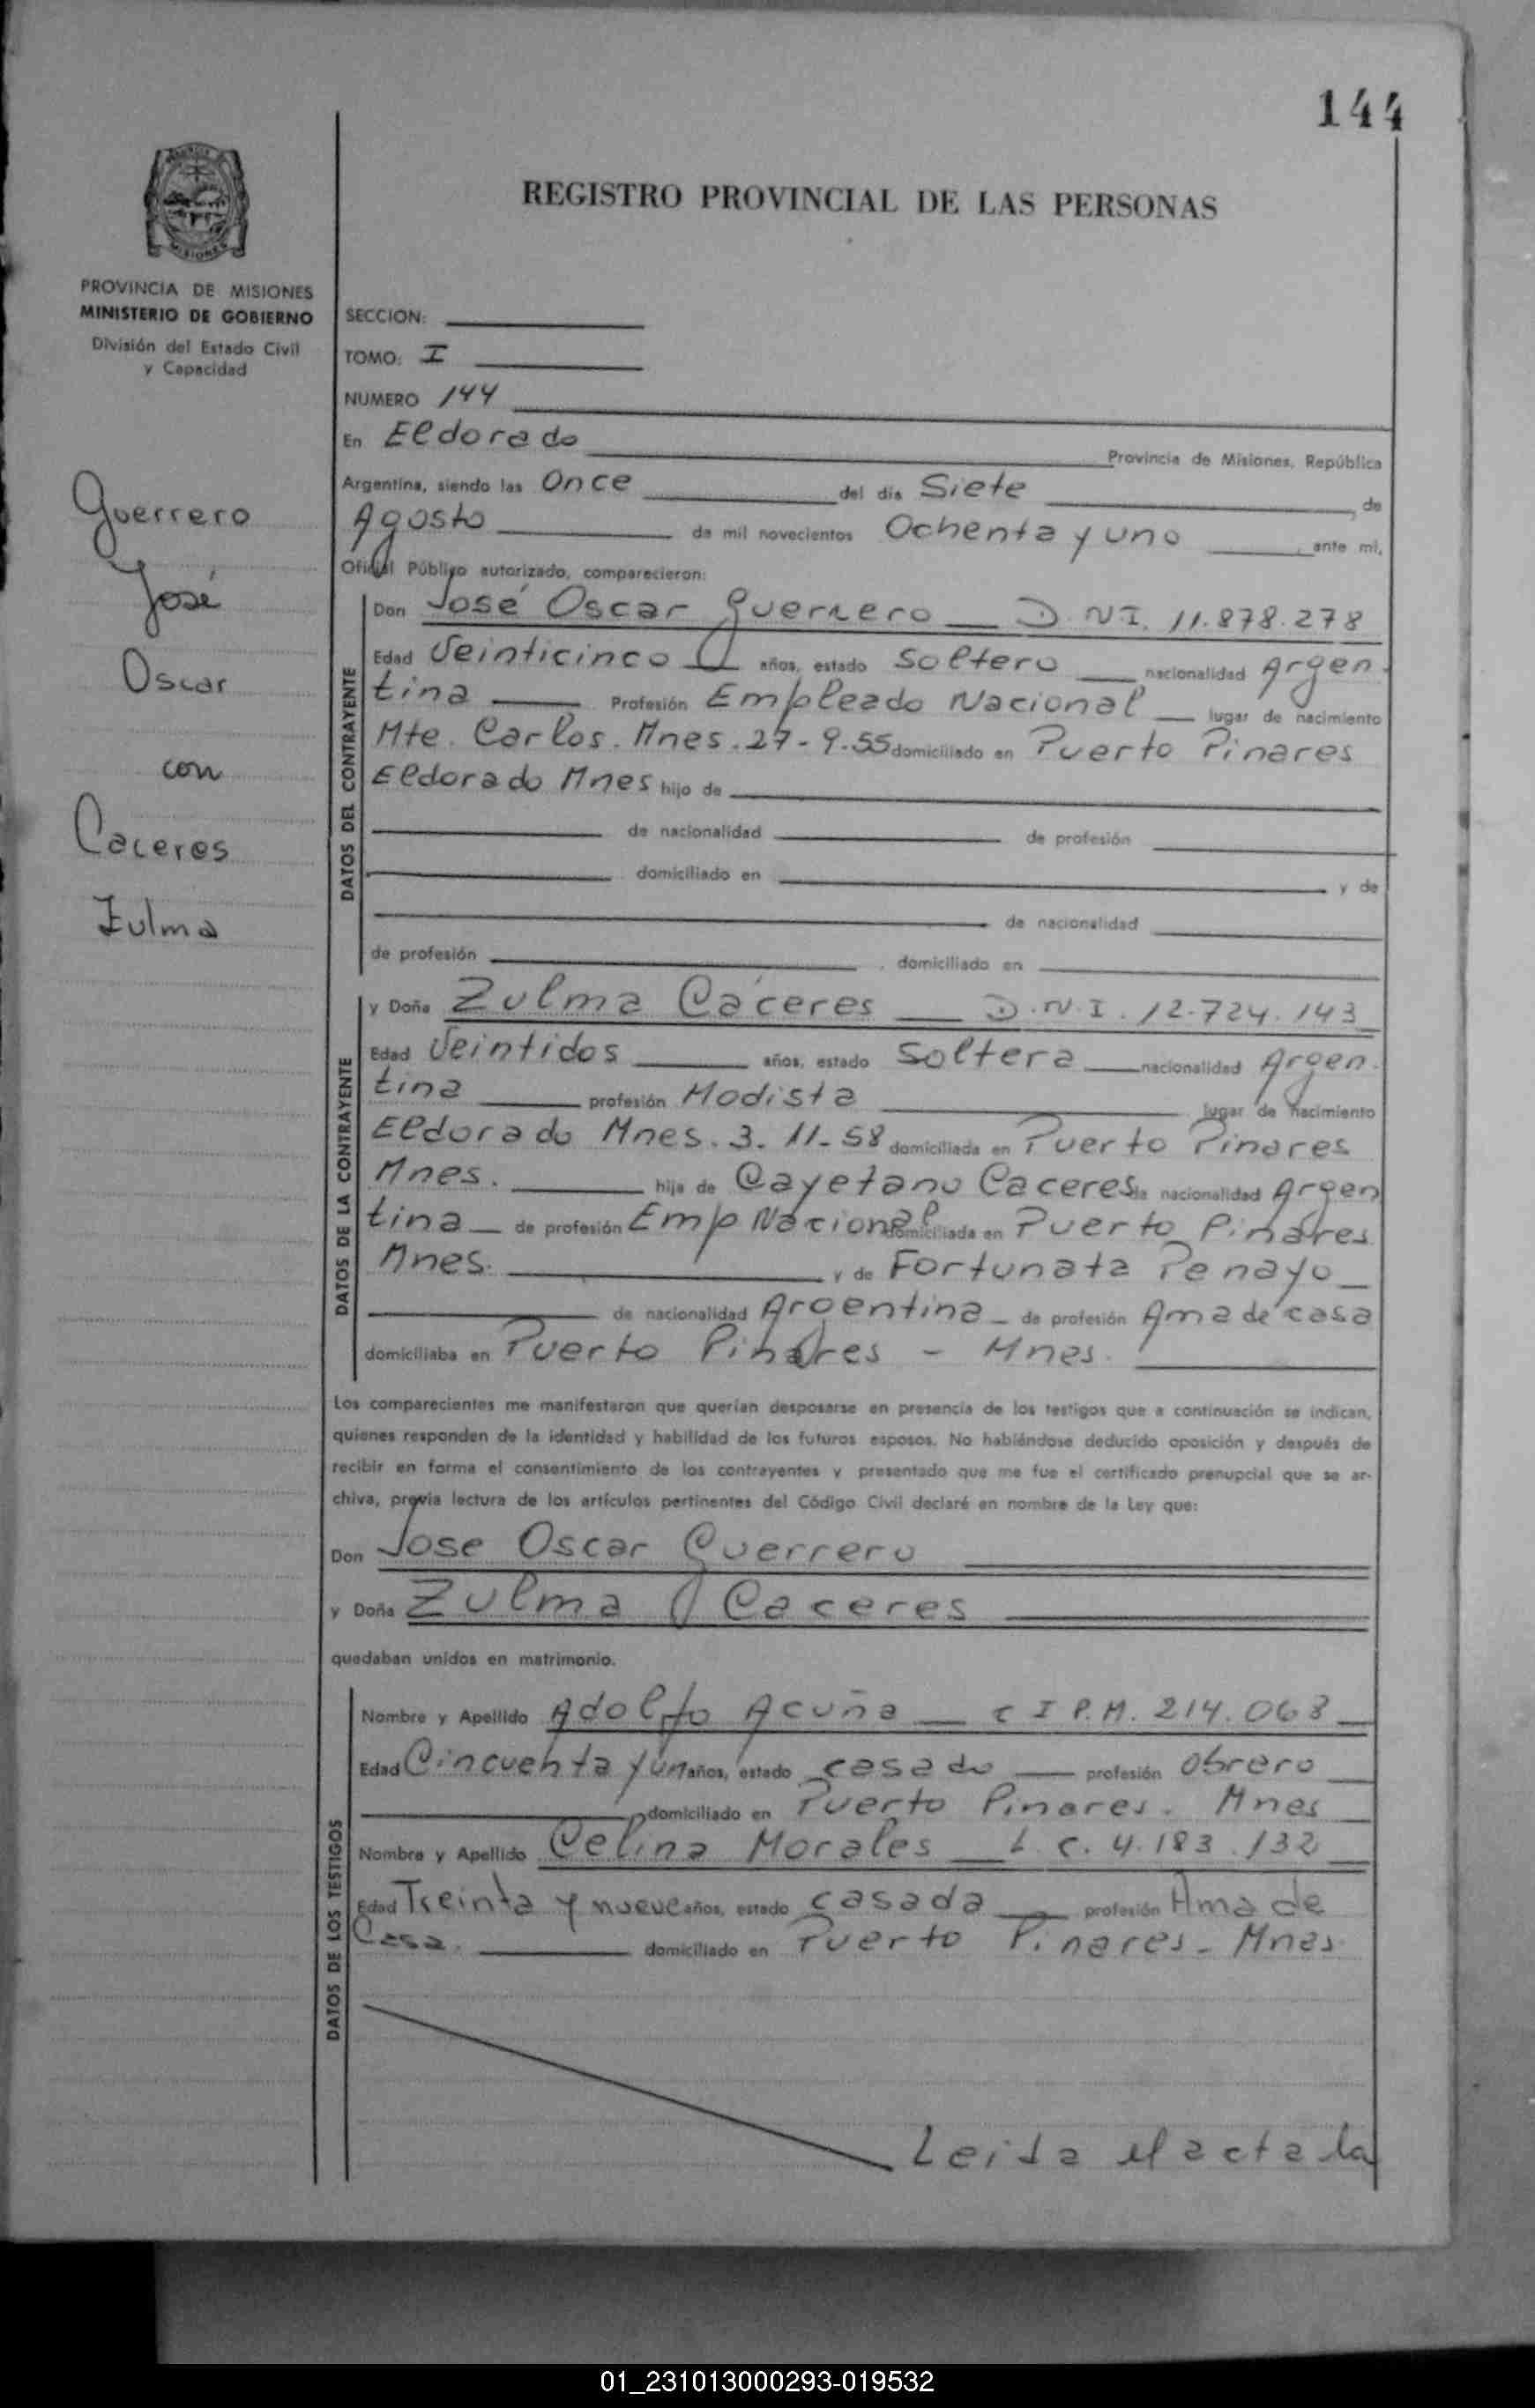 144
REGISTRO PROVINCIAL DE LAS PERSONAS
MISIONES
PROVINCIA DE MISIONES
MINISTERIO DE GOBIERNO
División del Estado Civil
y Capacidad
Guerrero
José
Oscar
con
Caceres
Zulma
SECCION:
TOMO: I
NUMERO 144
En Eldorado Provincia de Misiones, República
Argentina, siendo las Once del día Siete, de
Agosto de mil novecientos Ochenta y uno, ante mí,
Oficial Público autorizado, comparecieron:
DATOS DEL CONTRAYENTE
Don José Oscar Guerrero D.N.I. 11.878.278
Edad Veinticinco años, estado Soltero nacionalidad Argen
tina Profesión Empleado Nacional lugar de nacimiento
Mte. Carlos. Mnes. 27-9-55 domiciliado en Puerto Pinares
Eldorado Mnes hijo de
de nacionalidad de profesión
domiciliado en y de
de nacionalidad
de profesión, domiciliado en
DATOS DE LA CONTRAYENTE
y Doña Zulma Cáceres D.N.I. 12.724.143
Edad Veintidos años, estado Soltera nacionalidad Argen.
tina profesión Modista lugar de nacimiento
Eldorado Mnes. 3-11-58 domiciliada en Puerto Pinares
Mnes. hija de Cayetano Caceres de nacionalidad Argen
tina de profesión Emp Nacional domiciliada en Puerto Pinares
Mnes. y de Fortunata Penayo
de nacionalidad Argentina de profesión Ama de casa
domiciliaba en Puerto Pinares - Mnes.
Los comparecientes me manifestaron que querían desposarse en presencia de los testigos que a continuación se indican,
quienes responden de la identidad y habilidad de los futuros esposos. No habiéndose deducido oposición y después de
recibir en forma el consentimiento de los contrayentes y presentado que me fue el certificado prenupcial que se ar-
chiva, previa lectura de los artículos pertinentes del Código Civil declaré en nombre de la Ley que:
Don Jose Oscar Guerrero
y Doña Zulma Caceres
quedaban unidos en matrimonio.
DATOS DE LOS TESTIGOS
Nombre y Apellido Adolfo Acuña C I P.M. 214.068
Edad Cincuenta y un años, estado casado profesión obrero
domiciliado en Puerto Pinares. Mnes
Nombre y Apellido Celina Morales L. C. 4.183.132
Edad Treinta y nueve años, estado casada profesión Ama de
Casa. domiciliado en Puerto Pinares - Mnes
Leida el acta la
01_231013000293-019532